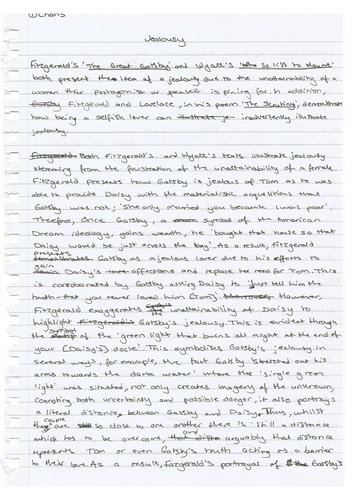 Jealousy
Fitzgerald's 'The Great Gatsby' and Wyatt's 'Who so list to Hount'
both present the idea of a jealousy due to the unattainability of a
women their protagonist or speaker is pining for. In addition,
Gatsby Fitzgerald and Lovelace, in his poem 'The Scrutiny', demonstrate
how being a selfish lover can illustrate je inadvertently illustrate
jealousy.
Fitzgerald Both Fitzgerald's and Wyatt's texts illustrate jealousy
stemming from the frustration of the unattainability of a female.
Fitzgerald presents how Gatsby is jealous of Tom as he was
able to provide Daisy with the materialistic acquisitions that
Gatsby was not; 'She only married you because I was poor'.
Therefore, once Gatsby, a symbol of the American
Dream ideology, gains wealth, he 'bought that house so that
Daisy would be just across the bay'. As a result, Fitzgerald
presents
demonstrates Gatsby as a jealous lover due to his efforts to
gain
Daisy's affections and replace her need for Tom. This
is corroborated by Gatsby asking Daisy to 'Just tell him the
truth - that you never loved him [Tom]'. However,
Fitzgerald exaggerates unattainability of Daisy to
highlight Fitzgerald's Gatsby's jealousy. This is evident though
the of the 'green light that burns all night at the end of
your [Daisy's] dock'. This symbolises Gatsby's jealousy in
several ways, for example, the fact Gatsby 'stretched out his
arms towards the dark water' where the 'single green
light' was situated, not only creates imagery of the unknown,
connoting both uncertainty and possible danger, it also portrays
a literal distance between Gatsby and Daisy. Thus, whilst
couple
they are so close to one another there is still a distance
which has to be overcome, and arguably that distance
represents Tom or even Gatsby's truth acting as a barrier
to their love. As a result, Fitzgerald's portrayal of Gatsby's